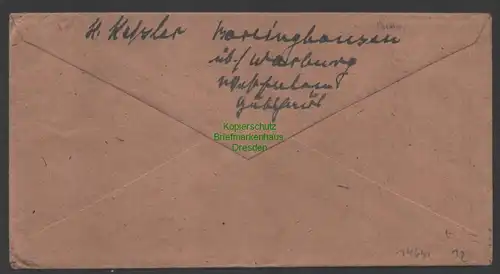 H. Keßler Borlinghausen
üb/ Warburg
Westfalen
Kopierschutz
Briefmarkenhaus
Dresden
12